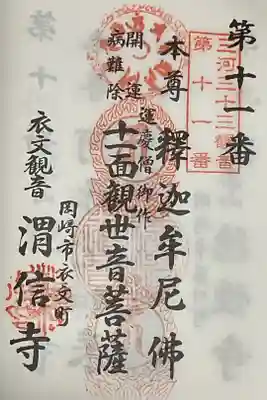 第十一番
三河三十三観音
第十一番
本尊 釋迦牟尼佛
運慶僧御作
開運
病難除
十一面觀世音菩薩
岡崎市衣文町
衣文観音
渭信寺